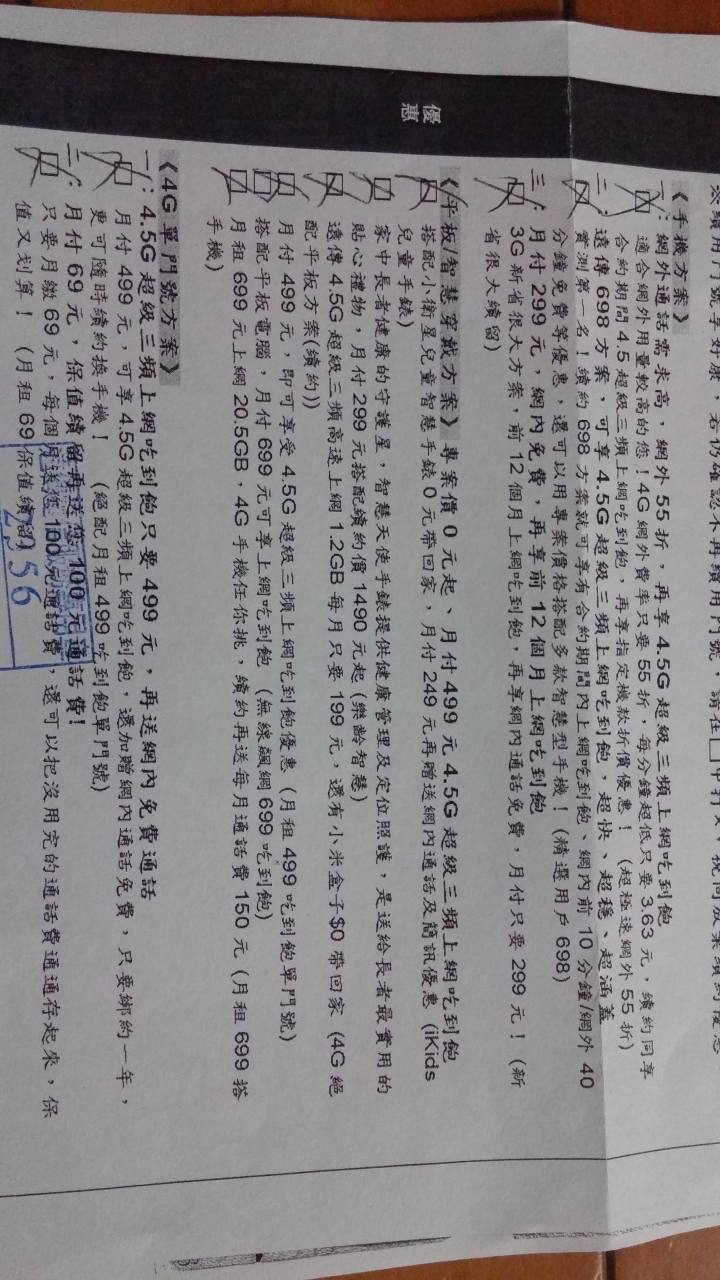 優惠
《手機方案》
一:網外通話需求高,網外 55 折,再享 4.5G 超級三頻上網吃到飽
適合網外用量較高的您!4G 網外費率只要 55 折,每分鐘超低只要 3.63 元,續約同享
合約期間 4.5 超級三頻上網吃到飽,再享指定機款折價優惠! (超極速網外 55 折)
二:遠傳 698 方案,可享 4.5G 超級三頻上網吃到飽,超快、超穩、超涵蓋
實測第一名!續約 698 方案就可享有合約期間內上網吃到飽、網內前 10 分鐘/網外 40
分鐘免費等優惠,還可以用專案價格搭配多款智慧型手機! (精選用戶 698)
三:月付 299 元,網內免費,再享前 12 個月上網吃到飽
3G 新省很大方案,前 12 個月上網吃到飽,再享網內通話免費,月付只要 299 元! (新
省很大續留)
《平板/智慧穿戴方案》專案價 0 元起、月付 499 元 4.5G 超級三頻上網吃到飽
搭配小衛星兒童智慧手錶 0 元帶回家,月付 249 元再贈送網內通話及簡訊優惠 (iKids
兒童手錶)
家中長者健康的守護星,智慧天使手錶提供健康管理及定位照護,是送給長者最實用的
貼心禮物,月付 299 元搭配續約價 1490 元起 (樂齡智慧)
遠傳 4.5G 超級三頻高速上網 1.2GB 每月只要 199 元,還有小米盒子$0 帶回家 (4G 絕
配平板方案(續約))
月付 499 元,即可享受 4.5G 超級三頻上網吃到飽優惠 (月租 499 吃到飽單門號)
搭配平板電腦,月付 699 元可享上網吃到飽 (無線飆網 699 吃到飽)
月租 699 元上網 20.5GB,4G 手機任你挑,續約再送每月通話費 150 元 (月租 699 搭
手機)
《4G 單門號方案》
一:4.5G 超級三頻上網吃到飽只要 499 元,再送網內免費通話
月付 499 元,可享 4.5G 超級三頻上網吃到飽,還加贈網內通話免費,只要綁約一年,
更可隨時續約換手機! (絕配月租 499 吃到飽單門號)
二:月付 69 元,保值續留再送您 100 元通話費!
只要月繳 69 元,每個月送您 100 元通話費,還可以把沒用完的通話費通通存起來,保
值又划算! (月租 69 保值續留)
2956